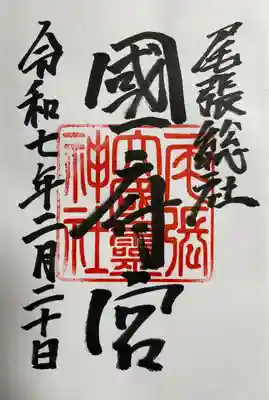 尾張総社
國府宮
尾張大國霊神社
令和七年二月二十日